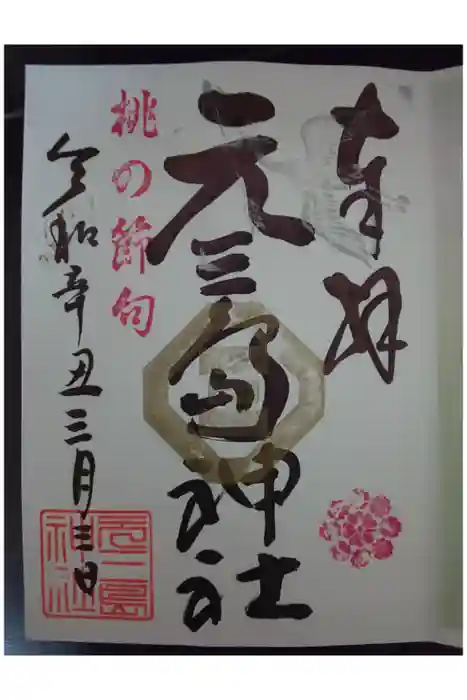 奉拝
元三島神社
桃の節句
令和辛丑三月三日
元三島神社